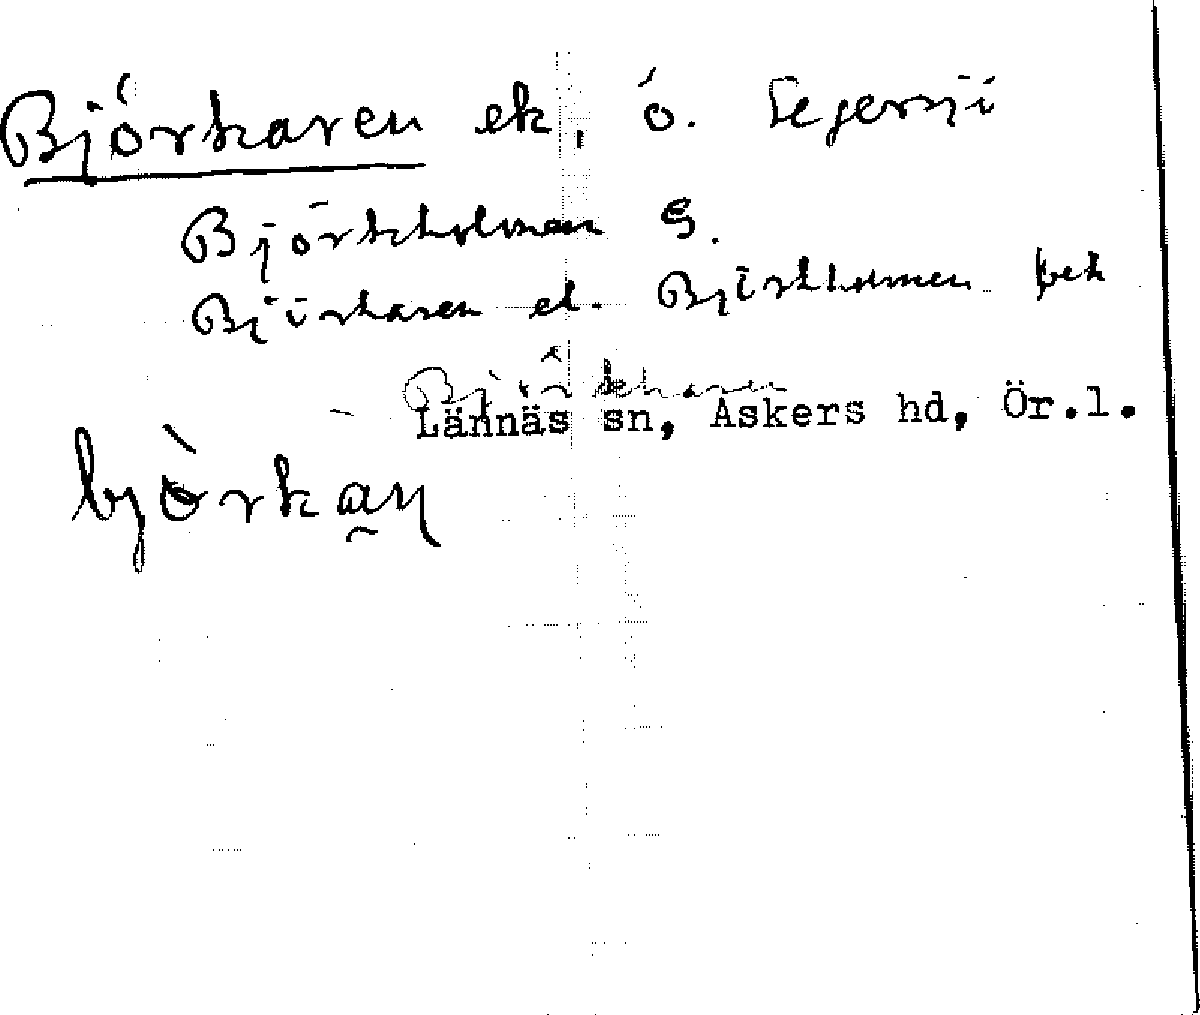 Björkaren ek, ö. Segersjö
Björkholmen G.
Björkaren el. Björkholmen bek
Björkharen
Lännäs sn, Askers hd, Ör.l.
björkaṇ